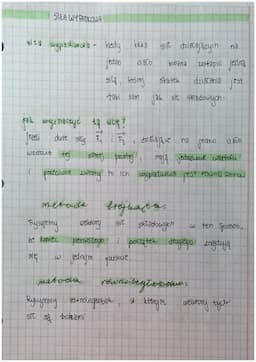 SIŁA WYPADKOWA
siła wypadkowa - kiedy kilka sił działających na
jedno ciało można zastąpić jedną
siłą, której skutek działania jest
taki sam jak sił składowych.
Jak wyznaczyć tą siłę?
Jeśli dwie siły F₁ i F₂, działające na jedno ciało
wzdłuż tej samej prostej, mają jednakowe wartości
i przeciwne zwroty to ich wypadkowa jest równa zero
metoda trójkąta:
Rysujemy wektory sił składowych w ten sposób,
że koniec pierwszego i początek drugiego znajdują
się w jednym punkcie.
metoda równoległoboku:
Rysujemy równoległobok, w którym wektory tych
sił są bokami